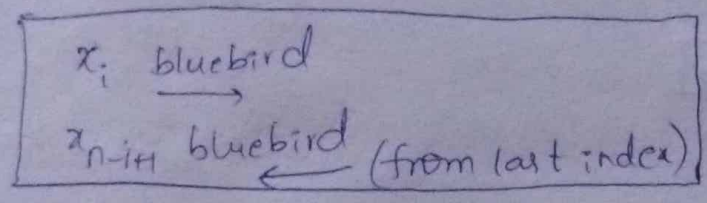 xᵢ bluebird
xₙ₋ᵢ₊₁ bluebird (from last index)